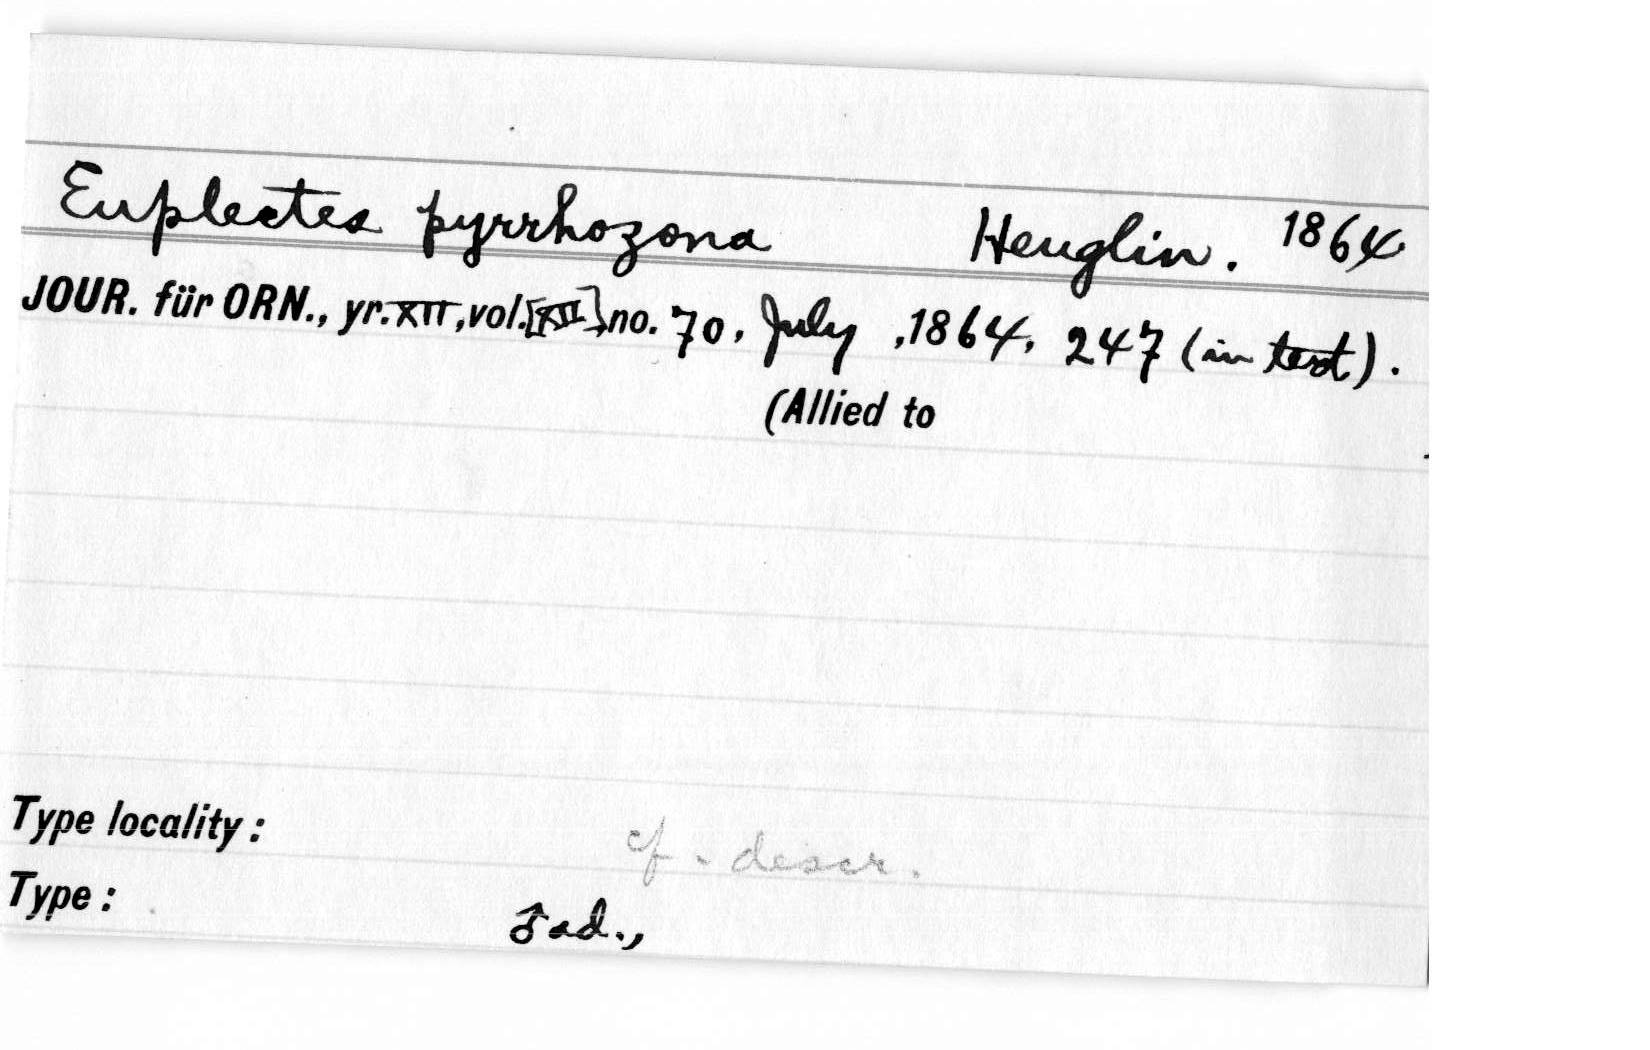 Euplectes pyrrhozona Heuglin. 1864
JOUR. für ORN., yr. XII, vol. [XII], no. 70, July, 1864, 247 (in text).
(Allied to
Type locality: cf. descr.
Type: ♂ ad.,